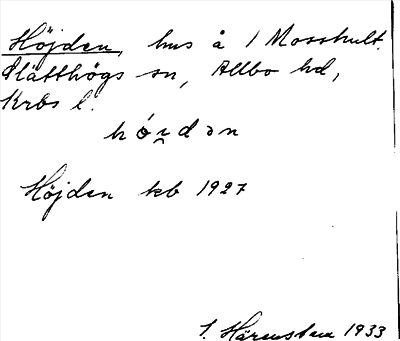 Höjden, hus å 1 Mosshult.
Slätthögs sn, Allbo hd,
Krbs l.
hǿi̯dən
Höjden kb 1927
1933